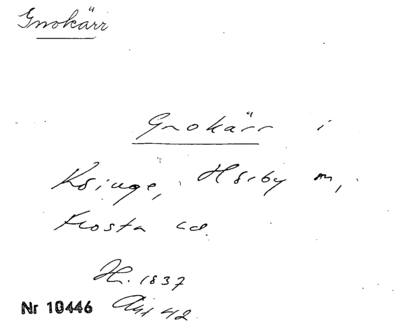 Gnokärr
Gnokärr i
Ksinge, Hörby sn,
Frosta hd.
H. 1837
Akt 42
Nr 10446